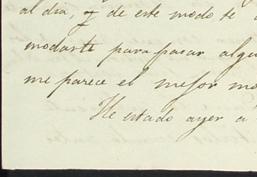 al dia, y de este modo te
modarte para pasar algu
me parece el mejor mo
He estado ayer a